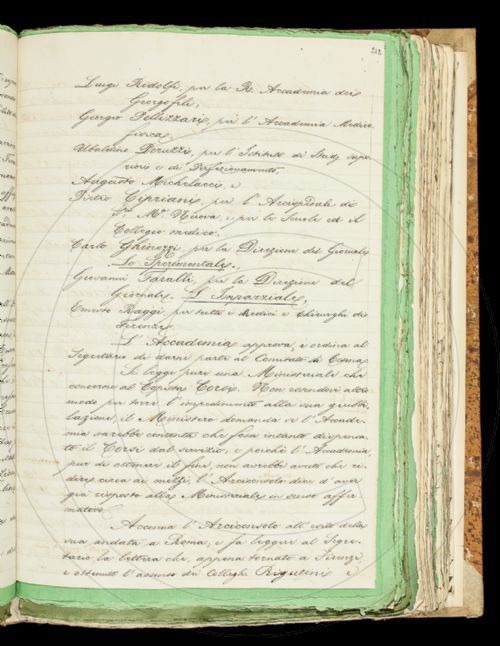 Luigi Ridolfi, per la R. Accademia dei
Georgofili,
Giorgio Pellizzari, per l'Accademia Medico
fisica,
Ubaldino Peruzzi, per l'Istituto di Studj supe-
riori e di Perfezionamento,
Augusto Michelacci, e
Pietro Cipriani, per l'Arcispedale di
S.ta M.a Nuova, e per la Scuola ed il
Collegio medico,
Carlo Ghinozzi per la Direzione del Giornale
Lo Sperimentale.
Giovanni Faralli, per la Direzione del
Giornale. L'Imparziale,
Ernesto Raggi per tutti i Medici e Chirurghi di
Firenze.
L'Accademia approva, e ordina al
Segretario di darne parte al Comitato di
Si legge pure una Ministeriale che
concerne al Corsi. Non essendovi altro
modo per torre l'impedimento alla sua
lazione, il Ministero domanda se l'Accade-
mia sarebbe contenta che fosse intanto dispensa-
to il Corsi dal servizio, e poichè l'Accademia,
pur di ottenere il fine, non avrebbe avuto che ri-
dire circa ai mezzi, l'Arciconsolo dice d'aver
già risposto alla Ministeriale in senso affer-
mativo.
Accenna l'Arciconsolo all'esito della
sua andata a Roma, e fa leggere al Segre-
tario la lettera che, appena tornato a Firenze
e ottenuto l'assenso dei Colleghi Rigutini e